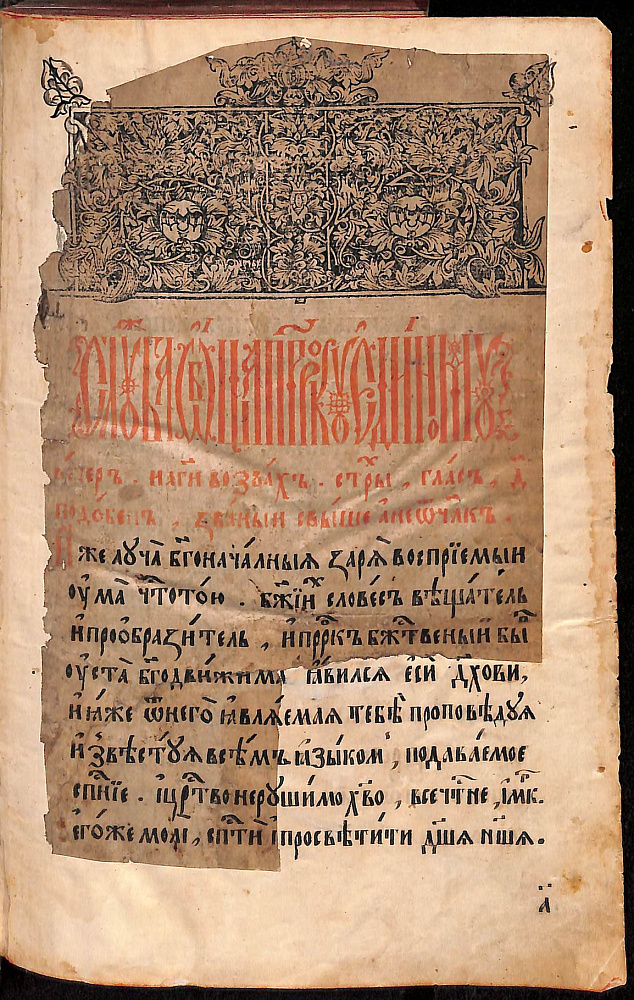 вечеръ . на ги возвахъ . стры , гласъ , д҃
подобенъ , званыи свыше а не ѿ чл҃къ .
же луча̀ бг҃оначалныѧ зарѧ̀ воспрїемыи
ѹма̀ чⷭ҇тотою . бж҃їиⷯ словесъ вѣщатель
и прообразитель , и прⷪ҇ркъ бжⷭ҇твеныи бы
ѹста̀ бг҃одвижима ꙗвилсѧ есѝ дх҃ови ,
и ꙗже ѿ него̀ ꙗвлѧемаѧ тебѣ проповѣдуѧ
и звѣстуѧ всѣмъ ꙗзыком , подаваемое
сп҃нїе . и црⷭ҇тво нерушимо хв҃о , всечⷭ҇тне , і҆мк.
его́же моли , сп҃сти і просвѣтити дш҃ѧ нш҃ѧ .
а҃